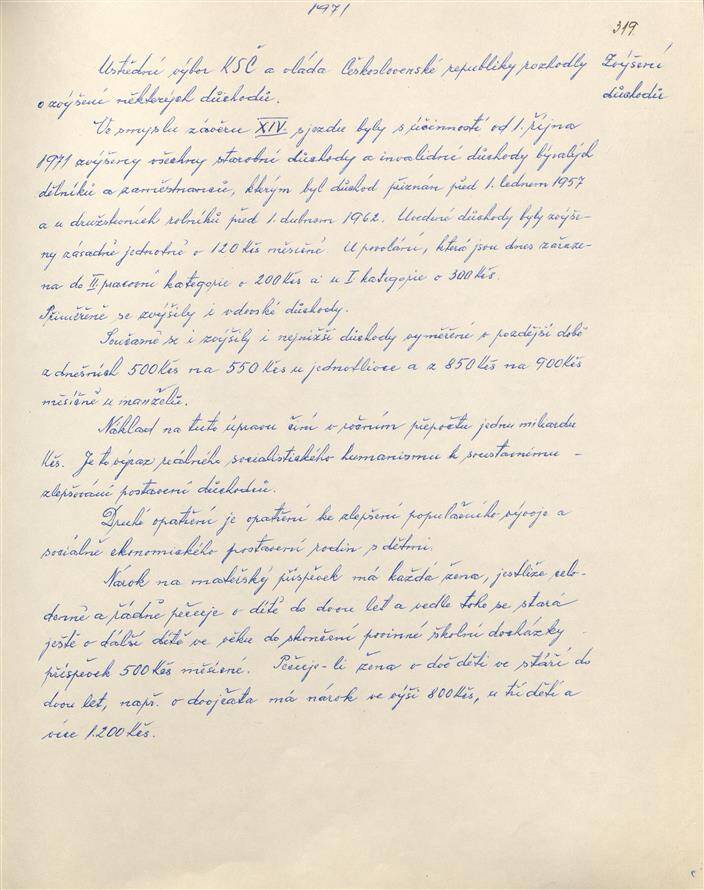 1971
319
Ustřední výbor KSČ a vláda Československé republiky rozhodly
Zvýšení
důchodů
o zvýšení některých důchodů.
Ve smyslu závěru XIV. sjezdu byly s účinností od 1. října
1971 zvýšeny všechny starobní důchody a invalidní důchody bývalých
dělníků a zaměstnanců, kterým byl důchod přiznán před 1. lednem 1957
a u družstevních rolníků před 1. dubnem 1962. Uvedené důchody byly zvýše-
ny zásadně jednotně o 120 Kčs měsíčně. U povolání, která jsou dnes zařaze-
na do II pracovní kategorie o 200 Kčs a u I kategorie o 300 Kčs.
Přiměřeně se zvýšily i vdovské důchody.
Současně se i zvýšily i nejnižší důchody vyměřené v pozdější době
z dnešních 500 Kčs na 550 Kčs u jednotlivce a z 850 Kčs na 900 Kčs
měsíčně u manželů.
Náklad na tuto úpravu činí v ročním přepočtu jednu miliardu
Kčs. Je to výraz reálného socialistického humanismu k soustavnému -
zlepšování postavení důchodců.
Druhé opatření je opatření ke zlepšení populačního vývoje a
sociálně ekonomického postavení rodin s dětmi.
Nárok na mateřský příspěvek má každá žena, jestliže celo-
denně a řádně pečuje o dítě do dvou let a vedle toho se stará
ještě o další dítě ve věku do skončení povinné školní docházky
příspěvek 500 Kčs měsíčně. Pečuje-li žena o dvě děti ve stáří do
dvou let, např. o dvojčata má nárok ve výši 800 Kčs, u tří dětí a
více 1.200 Kčs.